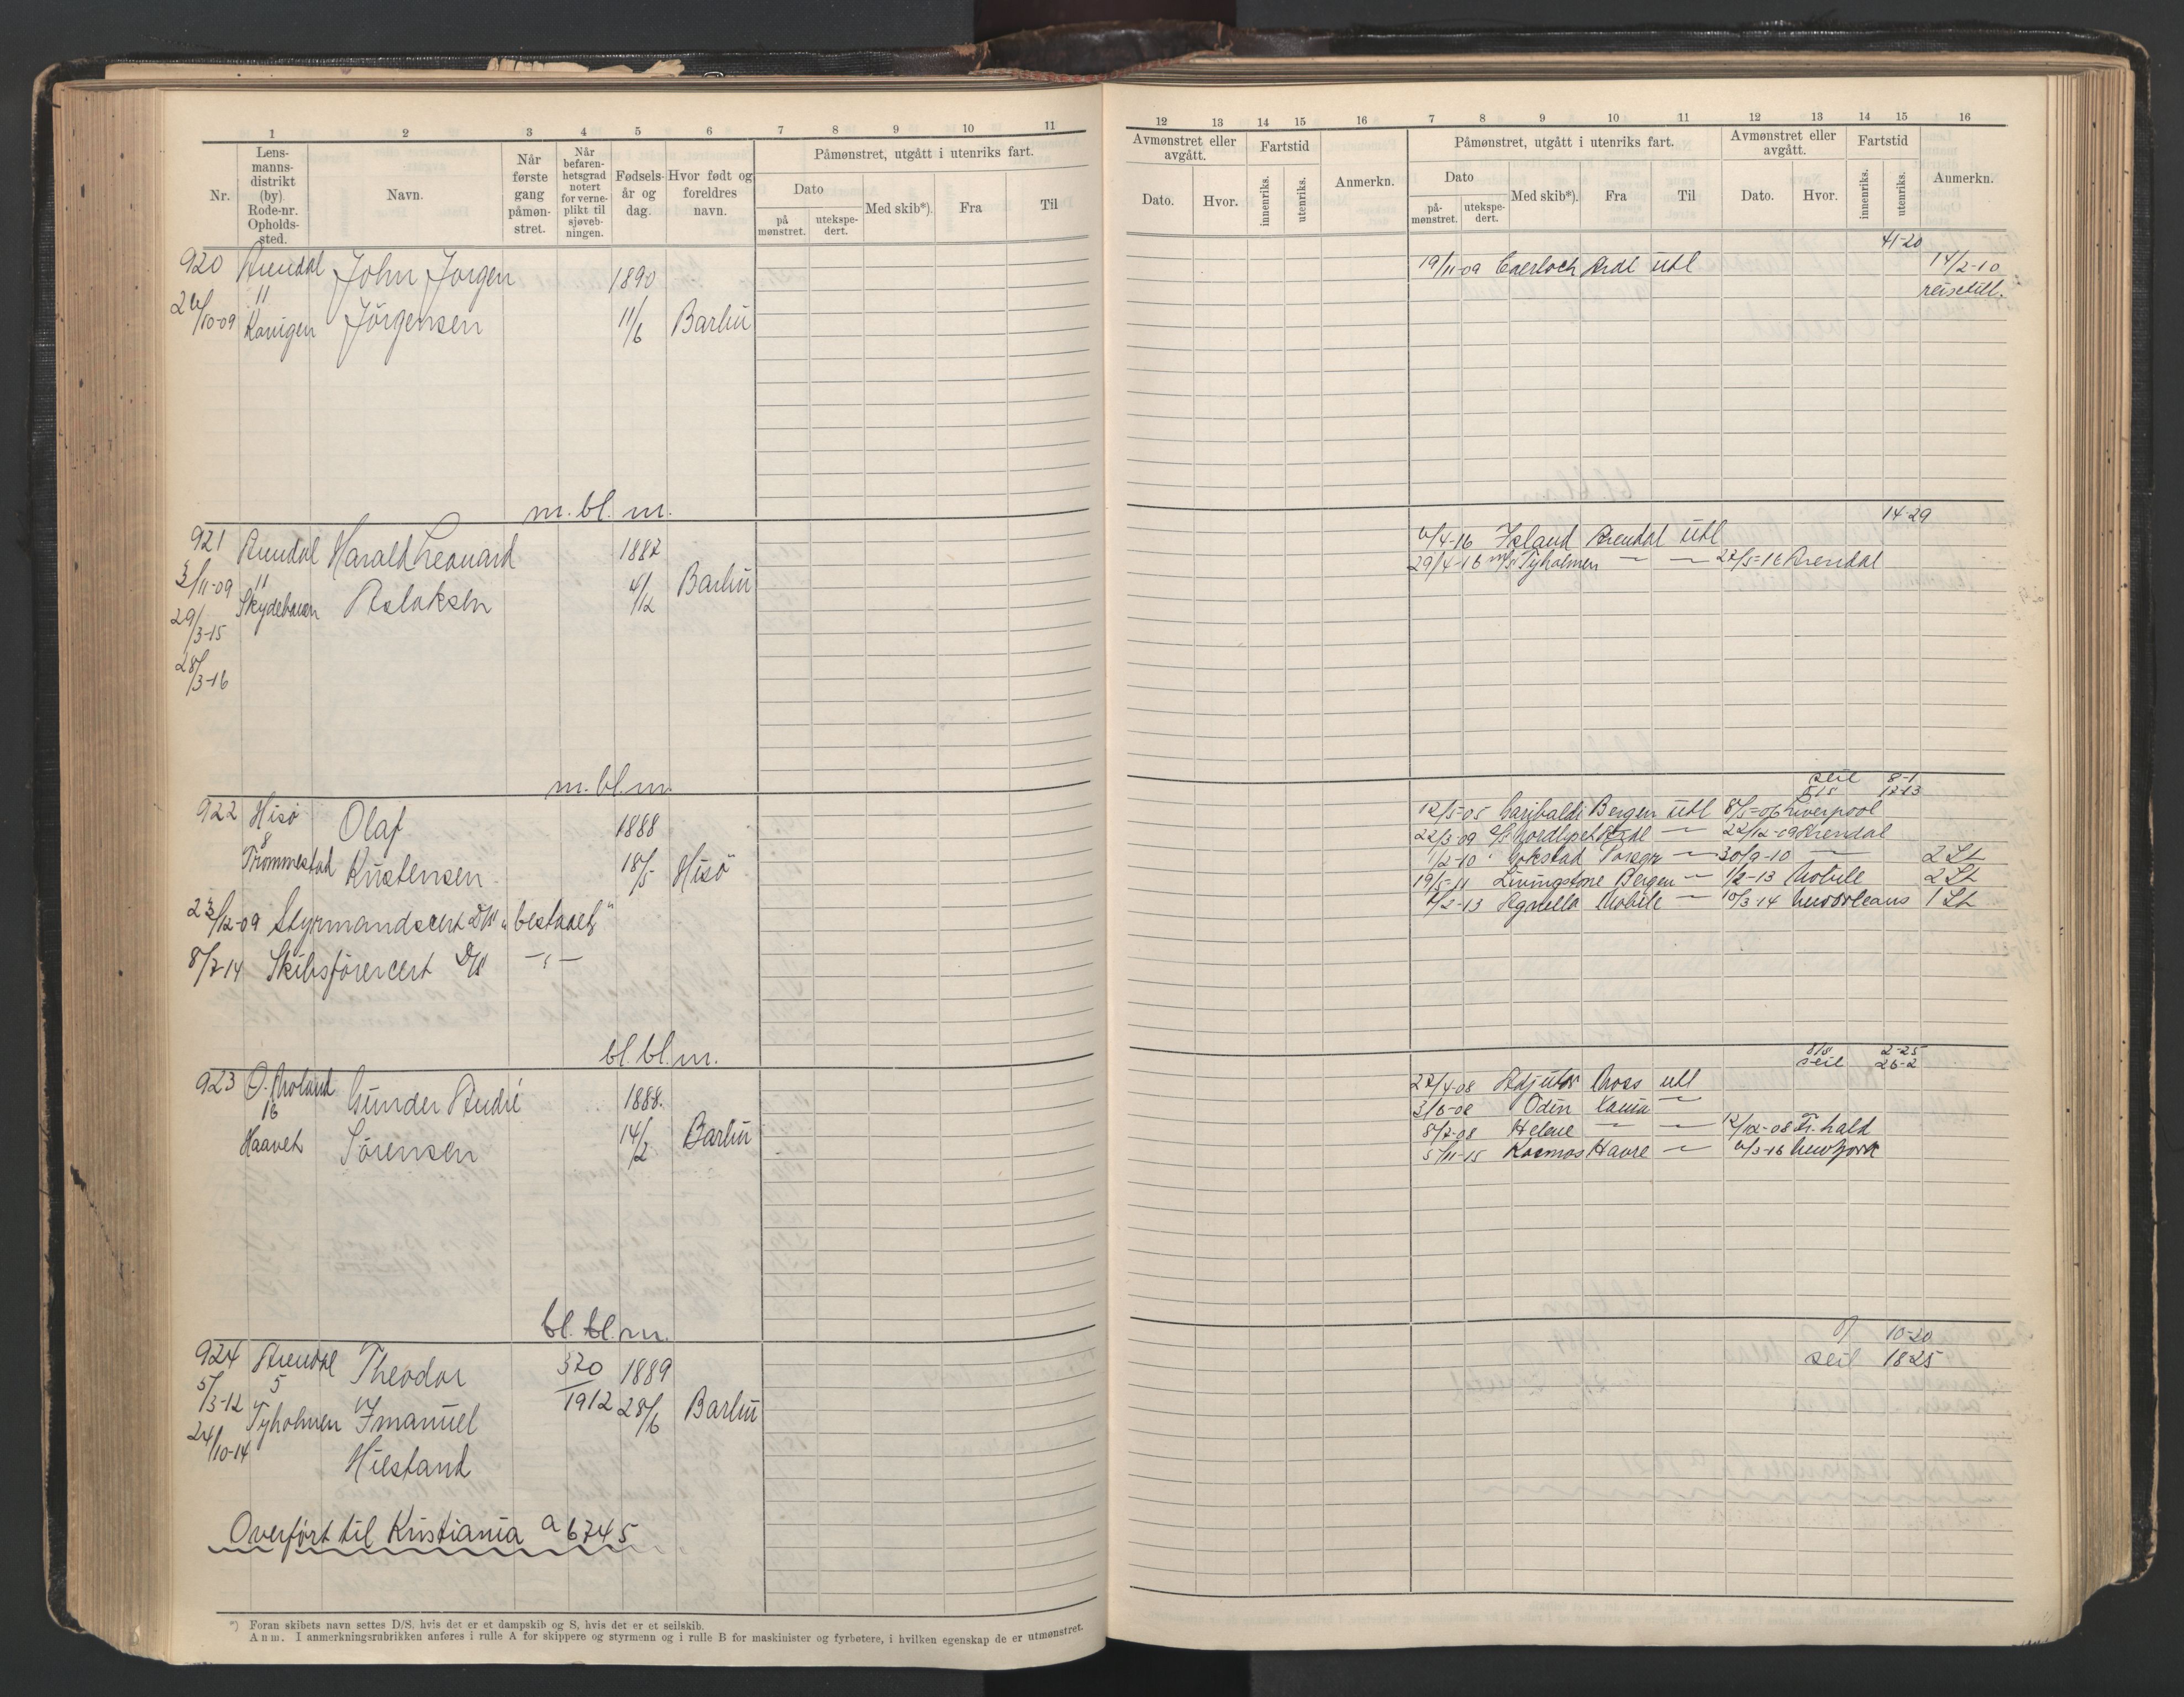 1 2 3 4 5 6 7 8 9 10 11
Nr.
Lens-
manns-
distrikt
(by)
Rode-nr.
Opholds-
sted.
Navn.
Når
første
gang
påmøn-
stret.
Når
befaren-
hetsgrad
notert
for verne-
plikt til
sjøveb-
ningen.
Fødsels-
år og
dag.
Hvor født og
foreldres
navn.
Påmønstret, utgått i utenriks fart.
Dato
på
mønstret.
utekspe-
dert.
Med skib*).
Fra
Til
920 Arendal John Jørgen 1890
26/10-09 11
Jörgensen 11/6 Barbu
m. bl. m.
921 Arendal Harald Leonard 1887
3/11-09 11 4/12 Barbu
Aslaksen
29/3-15
28/3-16
m. bl. m.
922 Hisö Olaf 1888
8
Trommestad Kristensen 18/5 Hisö
23/12-09 Styrmandscert D/S "bestaaet"
8/7-14 Skibsförercert D/S —"—
bl. bl. m.
923 Ö. Moland Gunder André 1888.
16
Haavet Sörensen 14/2 Barbu
bl. bl. m.
924 Arendal Theodor 320 1889
5/3-12 5 1912
Tyholmen Imanuel 28/6 Barbu
24/10-14
Hiestand
Overført til Kristiania a 6745
*) Foran skibets navn settes D/S, hvis det er et dampskib og S, hvis det er et seilskib.
Anm. I anmerkningsrubrikken anføres i rulle A for skippere og styrmenn og i rulle B for maskinister og fyrbøtere, i hvilken egenskap de er utmønstret.
12 13 14 15 16 7 8 9 10 11 12 13 14 15 16
Avmønstret eller
avgått.
Dato.
Hvor.
Fartstid
innenriks.
utenriks.
Anmerkn.
Påmønstret, utgått i utenriks fart.
Dato
på-
mønstret.
utekspe-
dert.
Med skib*).
Fra
Til
Avmønstret eller
avgått.
Dato.
Hvor.
Fartstid
innenriks.
utenriks.
Anmerkn.
41-20
19/11-09 Caerloch Ardl utl 14/2-10
reisetill.
14-29
6/4-16 Island Arendal utl
29/4-16 m/s Tyholmen — — 27/5-16 Arendal
seil 8-1
12-13
12/5-05 Garibaldi Bergen utl 8/5-06 Liverpool
22/3-09 — 22/12-09 Arendal
1/2-10 Gokstad Porsgr — 30/9-10 — 2 St
19/5-11 Livingstone Bergen — 1/2-13 Mobile 2 St
2/2-13 Agnella Mobile — 10/3-14 Neworleans 1 St
2-25
seil 26-2
27/4-08 Adjutor Moss utl
3/6-08 Odin Kania —
8/7-08 Helene — — 12/12-08 Fr.hald
5/11-15 Kosmos Havre — 6/3-16 Newyork
10-20
seil 18-25